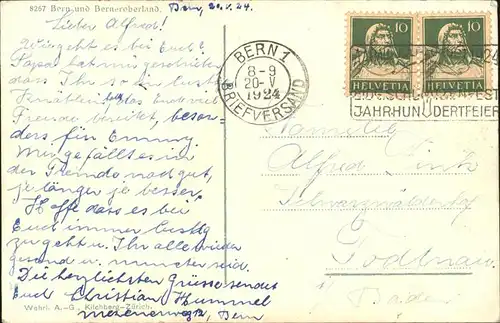 8267 Bern und Berneroberland.
Bern, 20.V.24.
Lieber Alfred!
Wie geht es bei Euch?
Papa hat mir geschrieben
dass Ihr so ein
Knäblein habt, das Euch viel
Freude bereitet, beson
ders für Emmy.
Mir gefällt es in
der Fremde noch gut,
je länger je besser.
Hoffe dass es bei
Euch immer lustig
zu geht u. Ihr alle wieder
gesund u. munter seid.
Die herzlichsten Grüsse sendet
Euch Christian Hummel
Bern
Wehrli A.-G., Kilchberg-Zürich.
BERN 1
8-9
20-V
1924
BRIEFVERSAND
10 10
HELVETIA HELVETIA
JAHRHUNDERTFEIER
Familie
Alfred
Todtnau
Baden